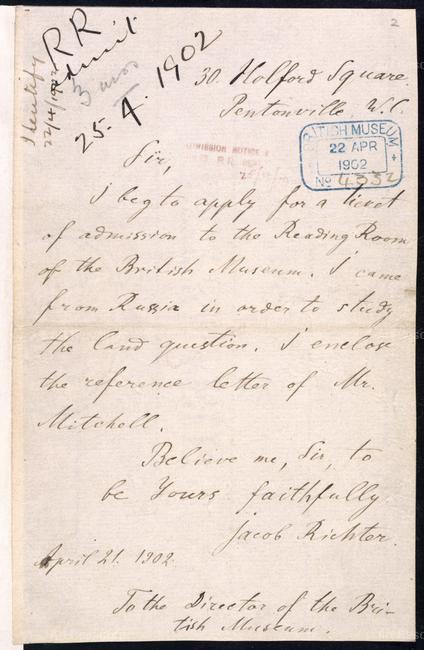 2
Identify
22/4/1902
RR
admit
3 mos
25.4.1902
30. Holford Square.
Pentonville W.C.
BRITISH MUSEUM
22 APR
1902
No 4332
Sir,
I beg to apply for a ticket
of admission to the Reading Room
of the British Museum. I came
from Russia in order to study
the land question. I enclose
the reference letter of Mr.
Mitchell.
Believe me, Sir, to
be Yours faithfully
Jacob Richter.
April 21. 1902.
To the Director of the Bri-
tish Museum.